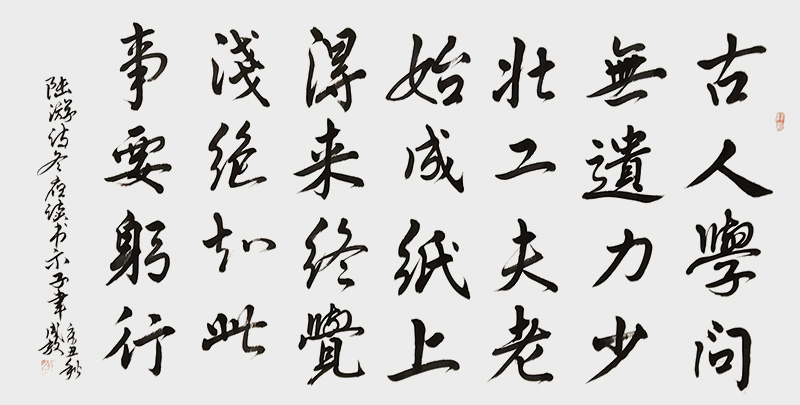 古人學問
無遺力少
壮工夫老
始成紙上
得来終覺
淺絕知此
事要躬行
陸游诗冬夜读书示子聿
辛丑秋